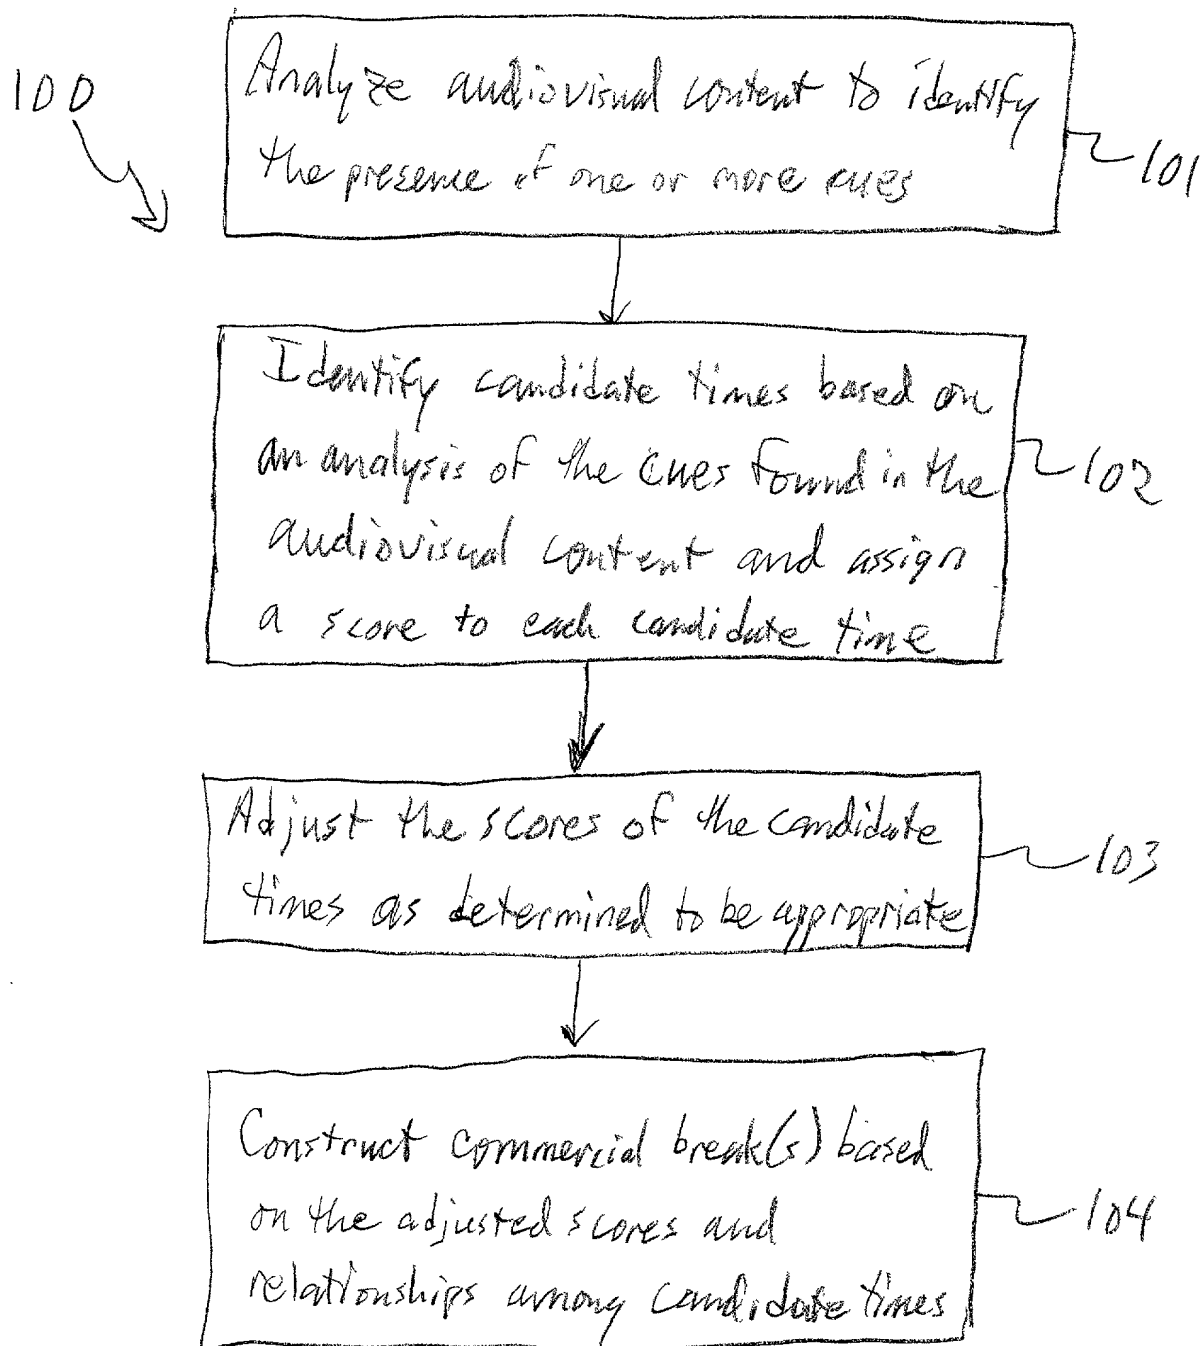 100
Analyze audiovisual content to identify
the presence of one or more cues
101
Identify candidate times based on
an analysis of the cues found in the
audiovisual content and assign
a score to each candidate time
102
Adjust the scores of the candidate
times as determined to be appropriate
103
Construct commercial break(s) based
on the adjusted scores and
relationships among candidate times
104